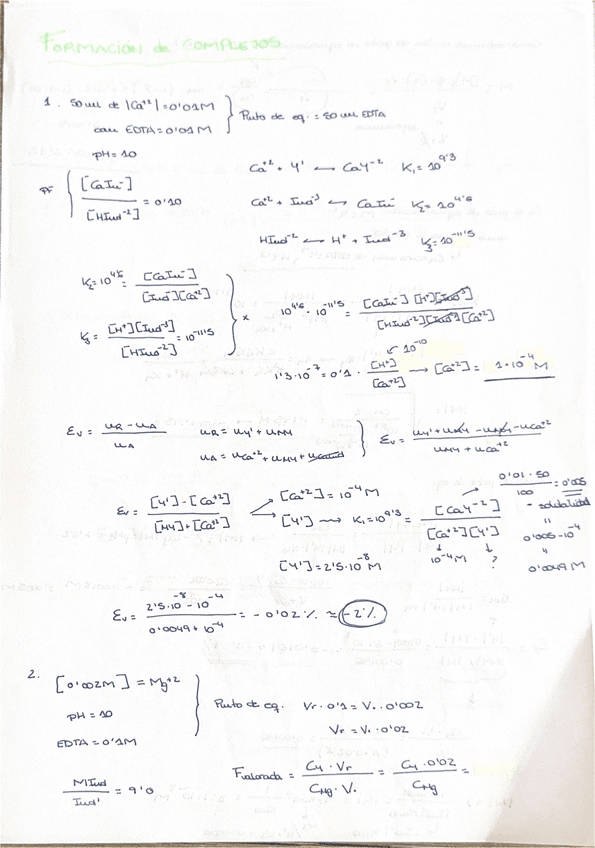 FORMACION de COMPLEJOS
1. 50 ml de |Ca⁺²| = 0'01M
con EDTA = 0'01M
pH = 10
Punto de eq. = 50 ml EDTA
PF
[CaIn⁻] / [HInd⁻²] = 0'10
Ca⁺² + Y' ⟷ CaY⁻² K₁ = 10^9'3
Ca⁺² + Ind⁻³ ⟷ CaIn⁻ K₂ = 10^4'6
HInd⁻² ⟷ H⁺ + Ind⁻³ K₃ = 10^-11'5
K₂ = 10^4'6 = [CaIn⁻] / [Ind⁻³][Ca⁺²]
K₃ = [H⁺][Ind⁻³] / [HInd⁻²] = 10^-11'5
x
10^4'6 · 10^-11'5 = [CaIn⁻][H⁺][Ind⁻³] / [HInd⁻²][Ind⁻³][Ca⁺²]
10⁻¹⁰
1'3·10⁻⁷ = 0'1 · [H⁺] / [Ca⁺²] → [Ca⁺²] = 1·10⁻⁴ M
Ev = (nR − nA) / nA
nR = nY' + nMY
nA = nCa⁺² + nMY +
Ev = (nY' + nMY − nMY − nCa⁺²) / (nMY + nCa⁺²)
Ev = [Y'] − [Ca⁺²] / [MY] + [Ca⁺²]
[Ca⁺²] = 10⁻⁴ M
[Y'] → K₁ = 10^9'3 = [CaY⁻²] / [Ca⁺²][Y']
10⁻⁴ M ?
0'01 · 50 / 100 = 0'005
- solubilidad
"
0'005 - 10⁻⁴
"
0'0049 M
[Y'] = 2'5·10⁻⁸ M
Ev = (2'5·10⁻⁸ − 10⁻⁴) / (0'0049 + 10⁻⁴) = − 0'02 % ≈ −2 %
2. [0'002M] = Mg⁺²
pH = 10
EDTA = 0'1M
Punto de eq. Vr · 0'1 = V₀ · 0'002
Vr = V₀ · 0'02
MInd / Ind' = 9'0
Fvalorada = C_Y · Vr / C_Mg · V₀ = C_Y · 0'02 / C_Mg =